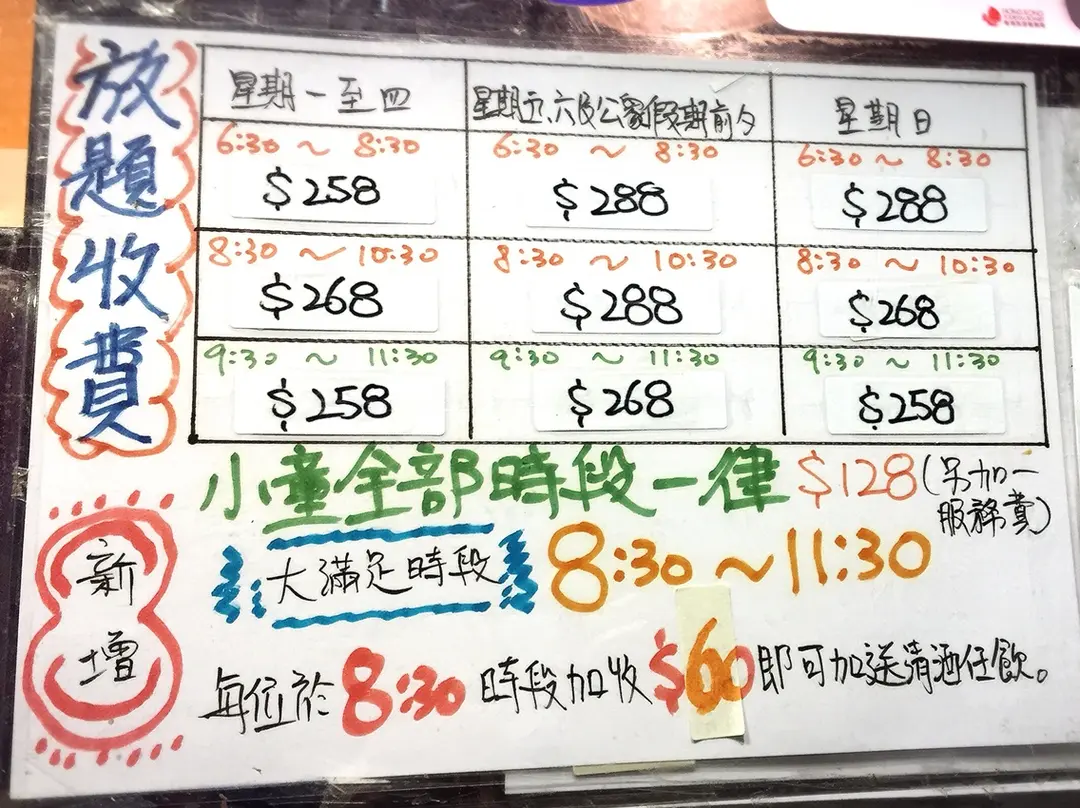 放題收費
星期一至四 星期五、六及公眾假期前夕 星期日
6:30 ～ 8:30 6:30 ～ 8:30 6:30 ～ 8:30
$258 $288 $288
8:30 ～ 10:30 8:30 ～ 10:30 8:30 ～ 10:30
$268 $288 $268
9:30 ～ 11:30 9:30 ～ 11:30 9:30 ～ 11:30
$258 $268 $258
小童全部時段一律 $128 (另加一
服務費)
新增
大滿足時段 8:30 ～ 11:30
每位於 8:30 時段加收 $60 即可加送清酒任飲。